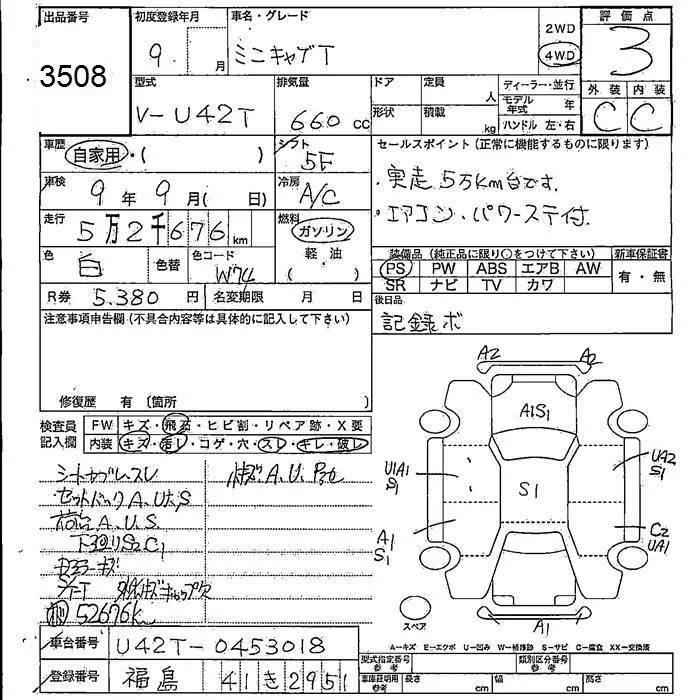 出品番号
3508
初度登録年月
9 月
車名・グレード
ミニキャブT
2WD
4WD
評価点
3
型式
V-U42T
排気量
660 cc
ドア
形状
定員 人
積載 kg
ディーラー・並行
モデル年式 年
ハンドル 左・右
外装 内装
C C
車歴
自家用・( )
シフト
5F
セールスポイント(正常に機能するものに限ります)
・実走5万km台です。
・エアコン・パワーステ付.
車検
9年9月( 日)
冷房
A/C
走行
5万2千676km
燃料
ガソリン
軽油
( )
色
白
色替
色コード
W74
装備品(純正品に限り○をつけて下さい)
PS PW ABS エアB AW
SR ナビ TV カワ
新車保証書
有・無
R券 5,380円
名変期限 月 日
後日品
記録ボ
注意事項申告欄(不具合内容等は具体的に記入して下さい)
修復歴 有〔箇所 〕
検査員記入欄
FW キズ・飛石・ヒビ割・リペア跡・X要
内装 キズ・汚レ・コゲ・穴・スレ・キレ・破レ
A.U.S.
52676K
A2 A2
A1S1
U1A1
S1
S1
UA2
S1
A1
S1
C2
UA1
A1
スペア
A-キズ E-エクボ U-凹み W-補修跡 S-サビ C-腐食 XX-交換済
車台番号
U42T-0453018
登録番号
福島 41 き 2951
型式指定番号 参考
類別区分番号 参考
車庫証明用 参考
長さ cm
幅 cm
高さ cm